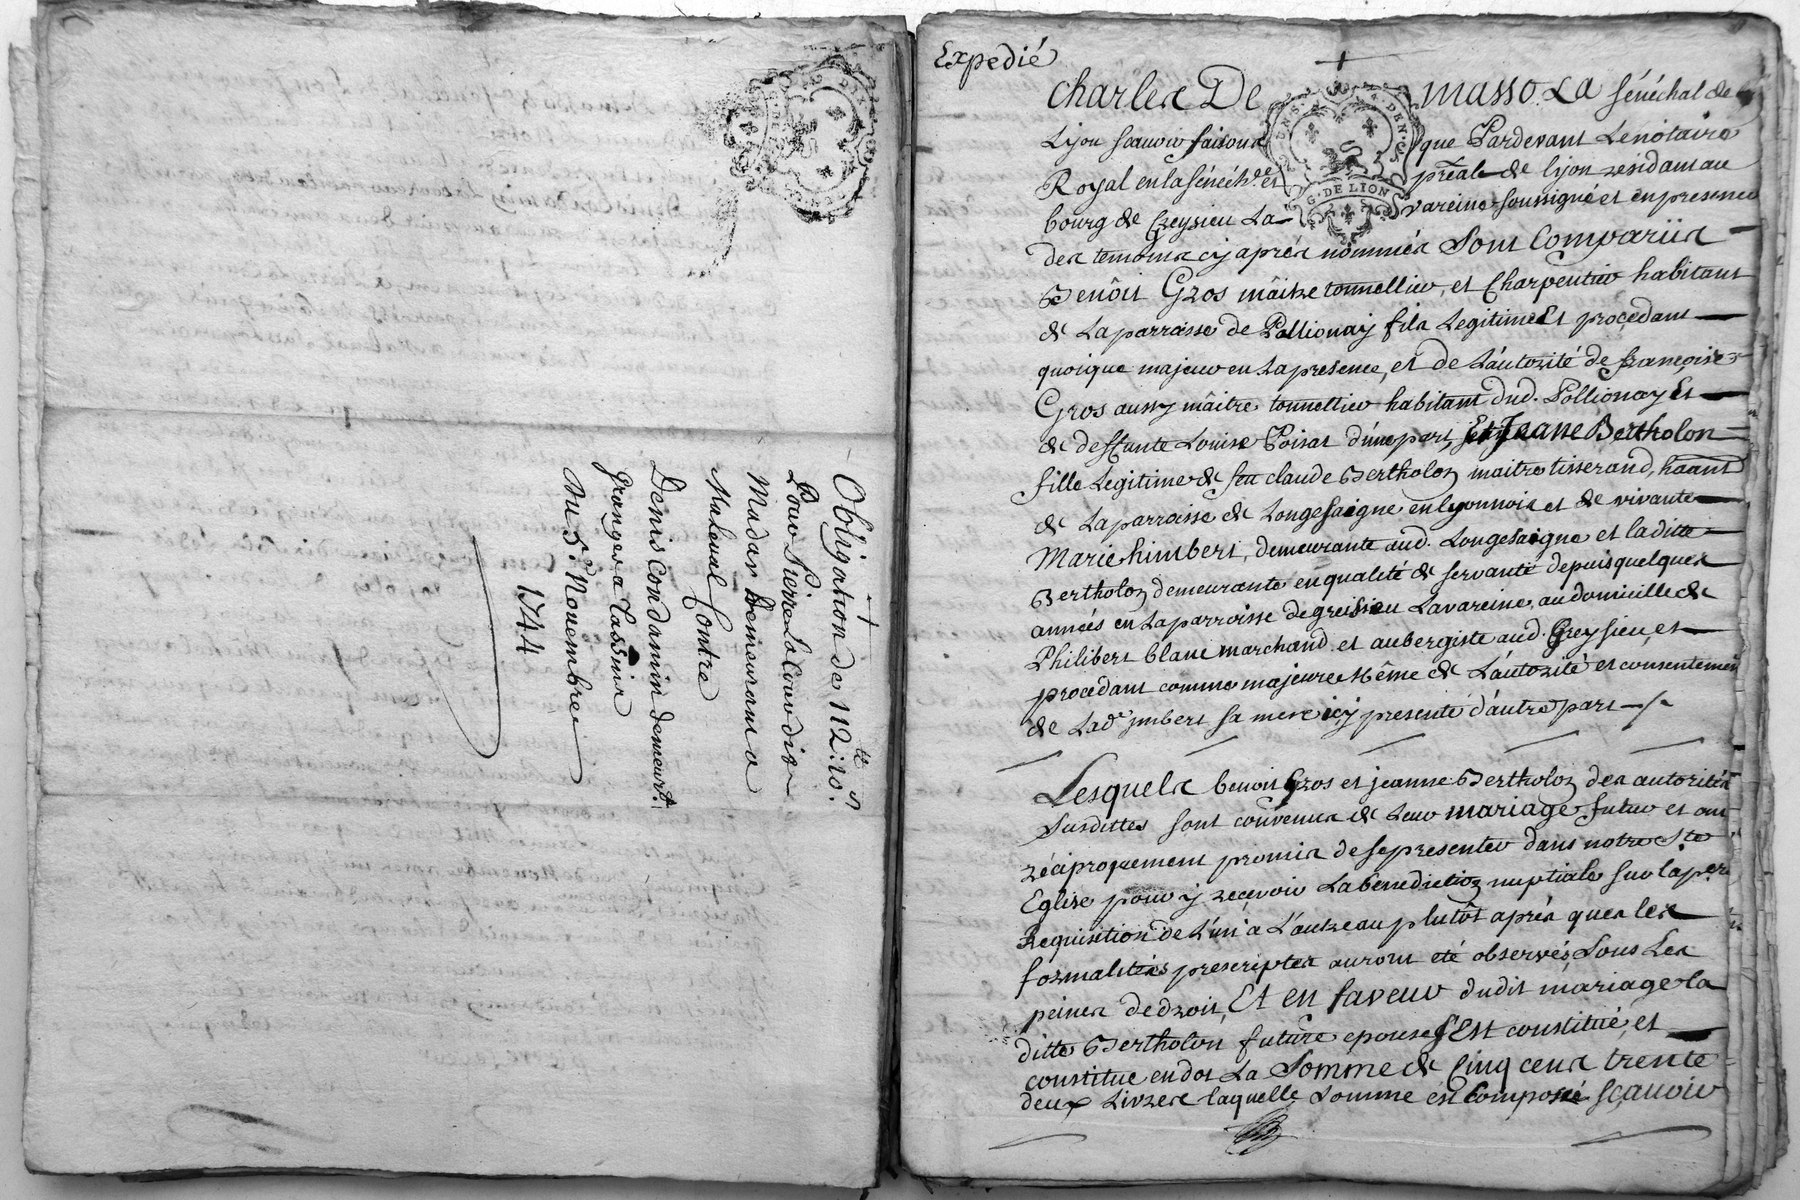 Obligation de 112:10.
tt s
Pour Pierre La Cour dit
Madar Demeurant a
Maleval Contre
Denis Condamin demeurt.
granger a Cassnir
Du 5.e Novembre
1744
Expedié
charles De masso La sénéchal de
Lyon scavoir faisons que Pardevant Lenotaire
Royal en la sénéch.ée et préale de lyon residam au
bourg de Greysieu La vareine soussigné et en presence
des temoins cy après nommés Sont Comparüs
Benoit Gros mâitre tonnellier, et Charpentier habitant
de La parroisse de Pollionay fils Legitime Et procedant
quoique majeur en La presence, et de L'autorité de françois
Gros aussy mâitre tonnellier habitant dud. Pollionay Et
de deffunte Louise Poisat d'une part, Et Jeanne Bertholon
fille Legitime de feu claude Bertholon maitre tisserand, haant
de La parroisse de Longesaigne en lyonnois et de vivante
Marie himbert, demeurante aud. Longesaigne et laditte
Bertholon demeurante en qualité de servante depuis quelques
années en La parroisse de greisieu Lavareine, au domicille de
Philibert blanc marchand et aubergiste aud. Greysieu, et
procedant comme majeure Même de L'autorité et consentement
de Lad.e jmbert sa mere icy presente d'autre part
Lesquels benoit Gros et jeanne Bertholon des autorités
Susdittes sont convenus de Leur mariage futur et ont
réciproquement promis de se presenter dans notre Ste
Eglise pour y recevoir La benediction nuptiale sur la per
Requisition de L'un à L'autre au plutôt après que les
formalités prescriptes auront eté observés, Sous Les
peines de droit, Et en faveur dudit mariage la
ditte Bertholon future epouse s'Est constitué, et
constitue en dot La Somme de Cinq cens trente
deux Livres laquelle Somme est Composé Sçavoir
G. DE LION